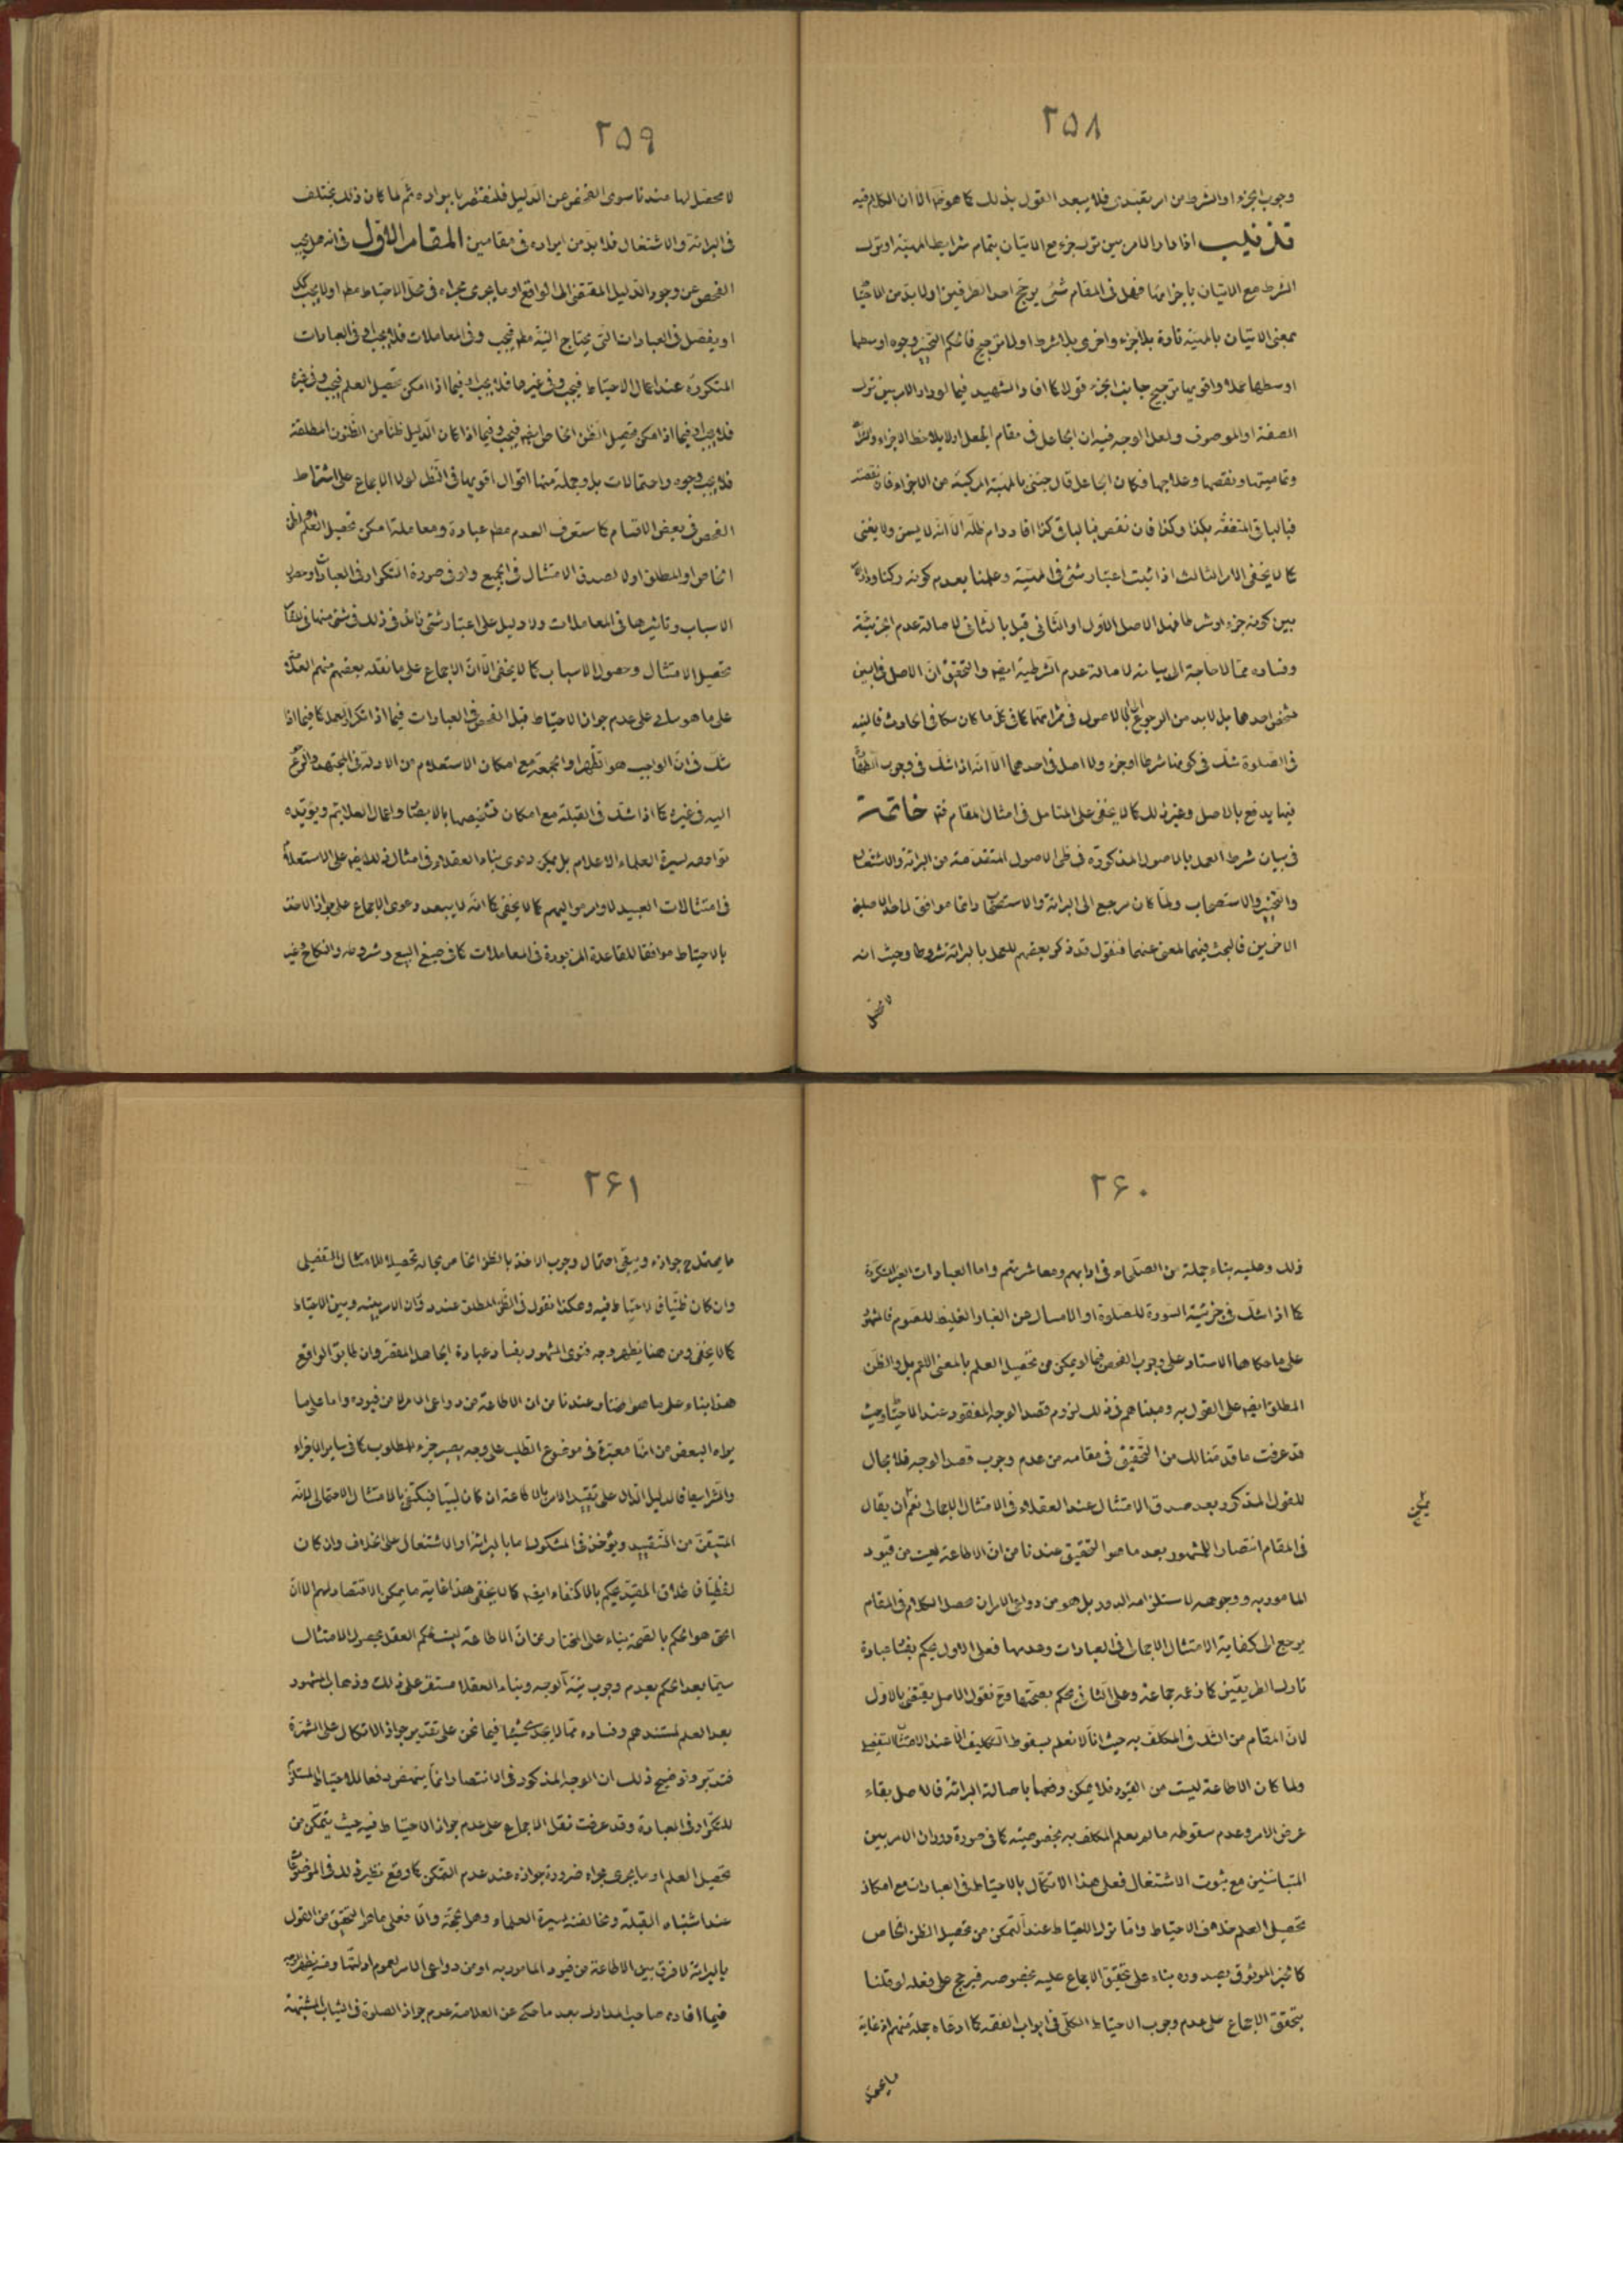 ٢٥٨
وجوب الجزء او الشرط من امر تعبدى فلا يبعد القول بذلك كما هو ظ الا ان الكلام فيه
تذنيب اذا دار الامر بين ترك جزء مع الاتيان بتمام شرايط المهيّة او ترك
الشرط مع الاتيان باجزائها فهل فى المقام شئ يرجّح احد الطرفين او لا بدّ من الاحتياط
بمعنى الاتيان بالمهيّة تارة بلا جزء واخرى بلا شرط او لا ترجيح فالحكم التخيير وجوه اوسطها
اوسطها عملا واقويها ترجيح جانب الجزء قولا كما افاد الشهيد فيما لو دار الامر بين ترك
الصفة او الموصوف ولعل الوجه فيه ان الجاعل فى مقام الجعل اولا يلاحظ الاجزاء
وتماميتها ونقصها وعلاجها فكان الجاعل قال جئنى بالمهيّة المركبة من الاجزاء فان نقصت
فبالباقى المتعقّه بكذا وكذا فان نقص فبالباقى كذا افاد دام ظلّه الا انه لا يسمن ولا يغنى
كما لا يخفى الامر الثالث اذا ثبت اعتبار شئ فى المهيّة وعلمنا بعدم كونه ركنا ودار
بين كونه جزء او شرطا فهل الاصل الاول او الثانى قيل بالثانى لاصالة عدم الجزئيّة
وفساده ممّا لا حاجة الى بيانه لاصالة عدم الشرطية ايضا والتحقيق ان الاصل فى البين
شخص احدها بل لا بد من الرجوع الى الاصول فى ثمراتها كما فى كلّ ما كان شكا فى الحادث فالنية
فى الصلوة شك فى كونها شرطا او جزء ولا اصل فى احدهما الا انه اذا شك فى وجوب
فيها يدفع بالاصل وغير ذلك كما لا يخفى على المتامل فى امثال المقام فتم خاتمة
فى بيان شرط العمل بالاصول المذكورة فى طى الاصول المتقدمة من البرائة والاشتغال
والتخيير والاستصحاب ولمّا كان مرجع الى البرائة والاستصحاب دائما موافق لاحد الاصلين
الاخرين فالبحث فيهما لمعنى عنهما فنقول قد ذكر بعضهم للعمل بالبرائة شروطا وحيث انه
لا محصّل
٢٥٩
لا محصّل لها عندنا سوى الفحص عن الدليل فلنقتصر بايراده ثم لما كان ذلك يختلف
فى البرائة والاشتغال فلا بدّ من ايراده فى مقامين المقام الاوّل فى انه هل يجب
الفحص عن وجود الدليل المقتضى الى الواقع او ما يجرى مجراه فى محل الاحتياط مطم او لا يجب كك
او يفصّل فى العبادات التى يحتاج النيّة مطم فيجب وفى المعاملات فلا يجب او فى العبادات
المتكررة عند اعمال الاحتياط فيجب وفى غيرها فلا يجب او فيما اذا امكن تحصيل العلم فيجب وفى غيره
فلا يجب او فيما اذا امكن تحصيل الظن الخاص ايضا فيجب وفيما اذا كان الدليل ظنا من الظنون المطلقة
فلا يجب وجوه واحتمالات بل وجملة منها اقوال اقويها فى النّظر لولا الاجماع على اشتراط
الفحص فى بعض الاقسام كما ستعرف العدم مطم عبادة ومعاملة امكن تحصيل العلم او الظن
الخاص او المطلق اولا لصدق الامتثال فى الجميع ولو فى صورة التكرار فى العبادات وحصول
الاسباب وتاثيرها فى المعاملات ولا دليل على اعتبار شئ زائد فى ذلك فى شئ منها فى
تحصيل الامتثال وحصول الاسباب كما لا يخفى الّا انّ الاجماع على ما نقله بعضهم منهم
على ما هو ببالى على عدم جواز الاحتياط قبل الفحص فى العبادات فيما اذا تكرار العمل كما فيما اذا
شك فى انّ الواجب هو الظهر او الجمعة مع امكان الاستعلام من الادلة فى المجتهد والرجوع
اليه فى غيره كما اذا شك فى القبلة مع امكان تشخيصها بالابصار واعمال العلايم ويؤيّده
توافقه لسيرة العلماء الاعلام بل يمكن دعوى بناء العقلاء فى امثال ذلك ايضا على الاستعلام
فى امتثالات العبيد لاوامر مواليهم كما لا يخفى كما انّه لا يبعد دعوى الاجماع على جواز الاخذ
بالاحتياط موافقا للقاعدة المزبورة فى المعاملات كما فى صيغ البيع وشروطه والنكاح وغير
٢۶٠
ذلك وعليه بناء جملة من الصلحاء فى ادابهم ومعاشرتهم واما العبادات الغير المتكررة
كما اذا شك فى جزئية السورة للصلوة او الامساك عن الغبار الغليظ للصوم فالمشهور
على ما حكاها الاستاد على وجوب الفحص فيما لو يمكن من تحصيل العلم بالمعنى الاعم بل والظن
المطلق ايضا على القول به ومبناهم فى ذلك لزوم قصد الوجه المفقود عند الاحتياط وحيث
قد عرفت ما قدّمنا لك من التحقيق فى مقامه من عدم وجوب قصد الوجه فلا مجال
للقول المذكور بعد صدق الامتثال عند العقلاء فى الامتثال الاجمالى نعم ان يقال
يمكن
فى المقام انتصارا للمشهور بعد ما هو التحقيق عندنا من انّ الاطاعة ليست من قيود
المامور به ووجوهه لاستلزامه الدور بل هو من دواعى الامر ان محصل الكلام فى المقام
يرجع الى كفاية الامتثال الاجمالى فى العبادات وعدمها فعلى الاول يحكم بفساد عبادة
تارك الطريقين كما زعمه جماعة وعلى الثانى يحكم بصحّتها وح نقول الاصل يقتضى بالاوّل
لانّ المقام من الشك فى المكلف به حيث انا لا نعلم بسقوط التكليف الّا عند الامتثال التفصيلى
ولما كان الاطاعة ليست من القيود فلا يمكن رفعها باصالة البرائة فالاصل بقاء
غرض الامر وعدم سقوطه ما لم يعلم المكلف به بخصوصيته كما فى صورة دوران الامر بين
المتباينين مع ثبوت الاشتغال فعلى هذا الاتكال بالاحتياط فى العبادات مع امكان
تحصيل العلم خلاف الاحتياط وامّا ترك الاحتياط عند التمكن من تحصيل الظن الخاص
كالخبر الموثوق بصدوره بناء على تحقق الاجماع عليه بخصوصه فيرجح على فعله لو قلنا
بتحقق الاجماع على عدم وجوب الاحتياط الكلّى فى ابواب الفقه كما ادعاه جملة منهم اذ غاية
ما يحتمل
٢۶١
ما يحتمل ح جوازه ويبقى احتمال وجوب الاخذ بالظن الخاص بحاله تحصيلا للامتثال التفصيلى
وان كان ظنيّا فى الاحتياط فيه وهكذا نقول فى الظن المطلق عند دوران الامر بينه وبين الاحتياط
كما لا يخفى ومن هنا يظهر وجه فتوى المشهور بفساد عبادة الجاهل المقصّر وان طابق الواقع
هذا بناء على ما هو المختار عندنا من ان الاطاعة من دواعى الامر لا من قيوده واما على ما
يراه البعض من انّها معتبرة فى موضوع الطلب على وجه يصير جزء للمطلوب كما فى ساير الاجزاء
والشرايط فالدليل الدال على تقييد الامر بالاطاعة ان كان لبيّا فيكتفى بالامتثال الاحتمالى لانّه
المتيقّن من التّقييد ويؤخذ فى المشكوك ما بالبرائة او الاشتغال على الخلاف وان كان
لفظيّا فى طلاق المقيّد يحكم بالاكتفاء ايضا كما لا يخفى هذا غاية ما يمكن الانتصار لهم الا انّ
الحق هو الحكم بالصّحة بناء على المختار من انّ الاطاعة ليست بحكم العقل بحصول الامتثال
سيّما بعد الحكم بعدم وجوب نيّة الوجه وبناء العقلاء مستقر على ذلك وذهاب المشهور
بعد العلم لمستندهم وفساده ممّا لا يجدى شيئا فيما نحن على تقدير جواز الاتكال على الشهرة
فتدبّر وتوضيح ذلك ان الوجه المذكور فى الانتصار انّما ينهض دفعا للاحتياط المستلزم
للتكرار فى العبادة وقد عرفت نقل الاجماع على عدم جواز الاحتياط فيه حيث يتمكّن من
تحصيل العلم او ما يجرى مجراه ضرورة جوازه عند عدم التمكن كما وقع نظير ذلك فى الموضوعات
عند اشتباه القبلة ومخالفته لسيرة العلماء وهو الحجّة والّا فعلى ما هو التحقيق من القول
بالبرائة لا فرق بين الاطاعة من قيود المامور به او من دواعى الامر لعموم ادلتها ومنه يظهر وجه
فيما افاده صاحب المدارك بعد ما حكى عن العلامة عدم جواز الصلوة فى الثياب المشتبهة